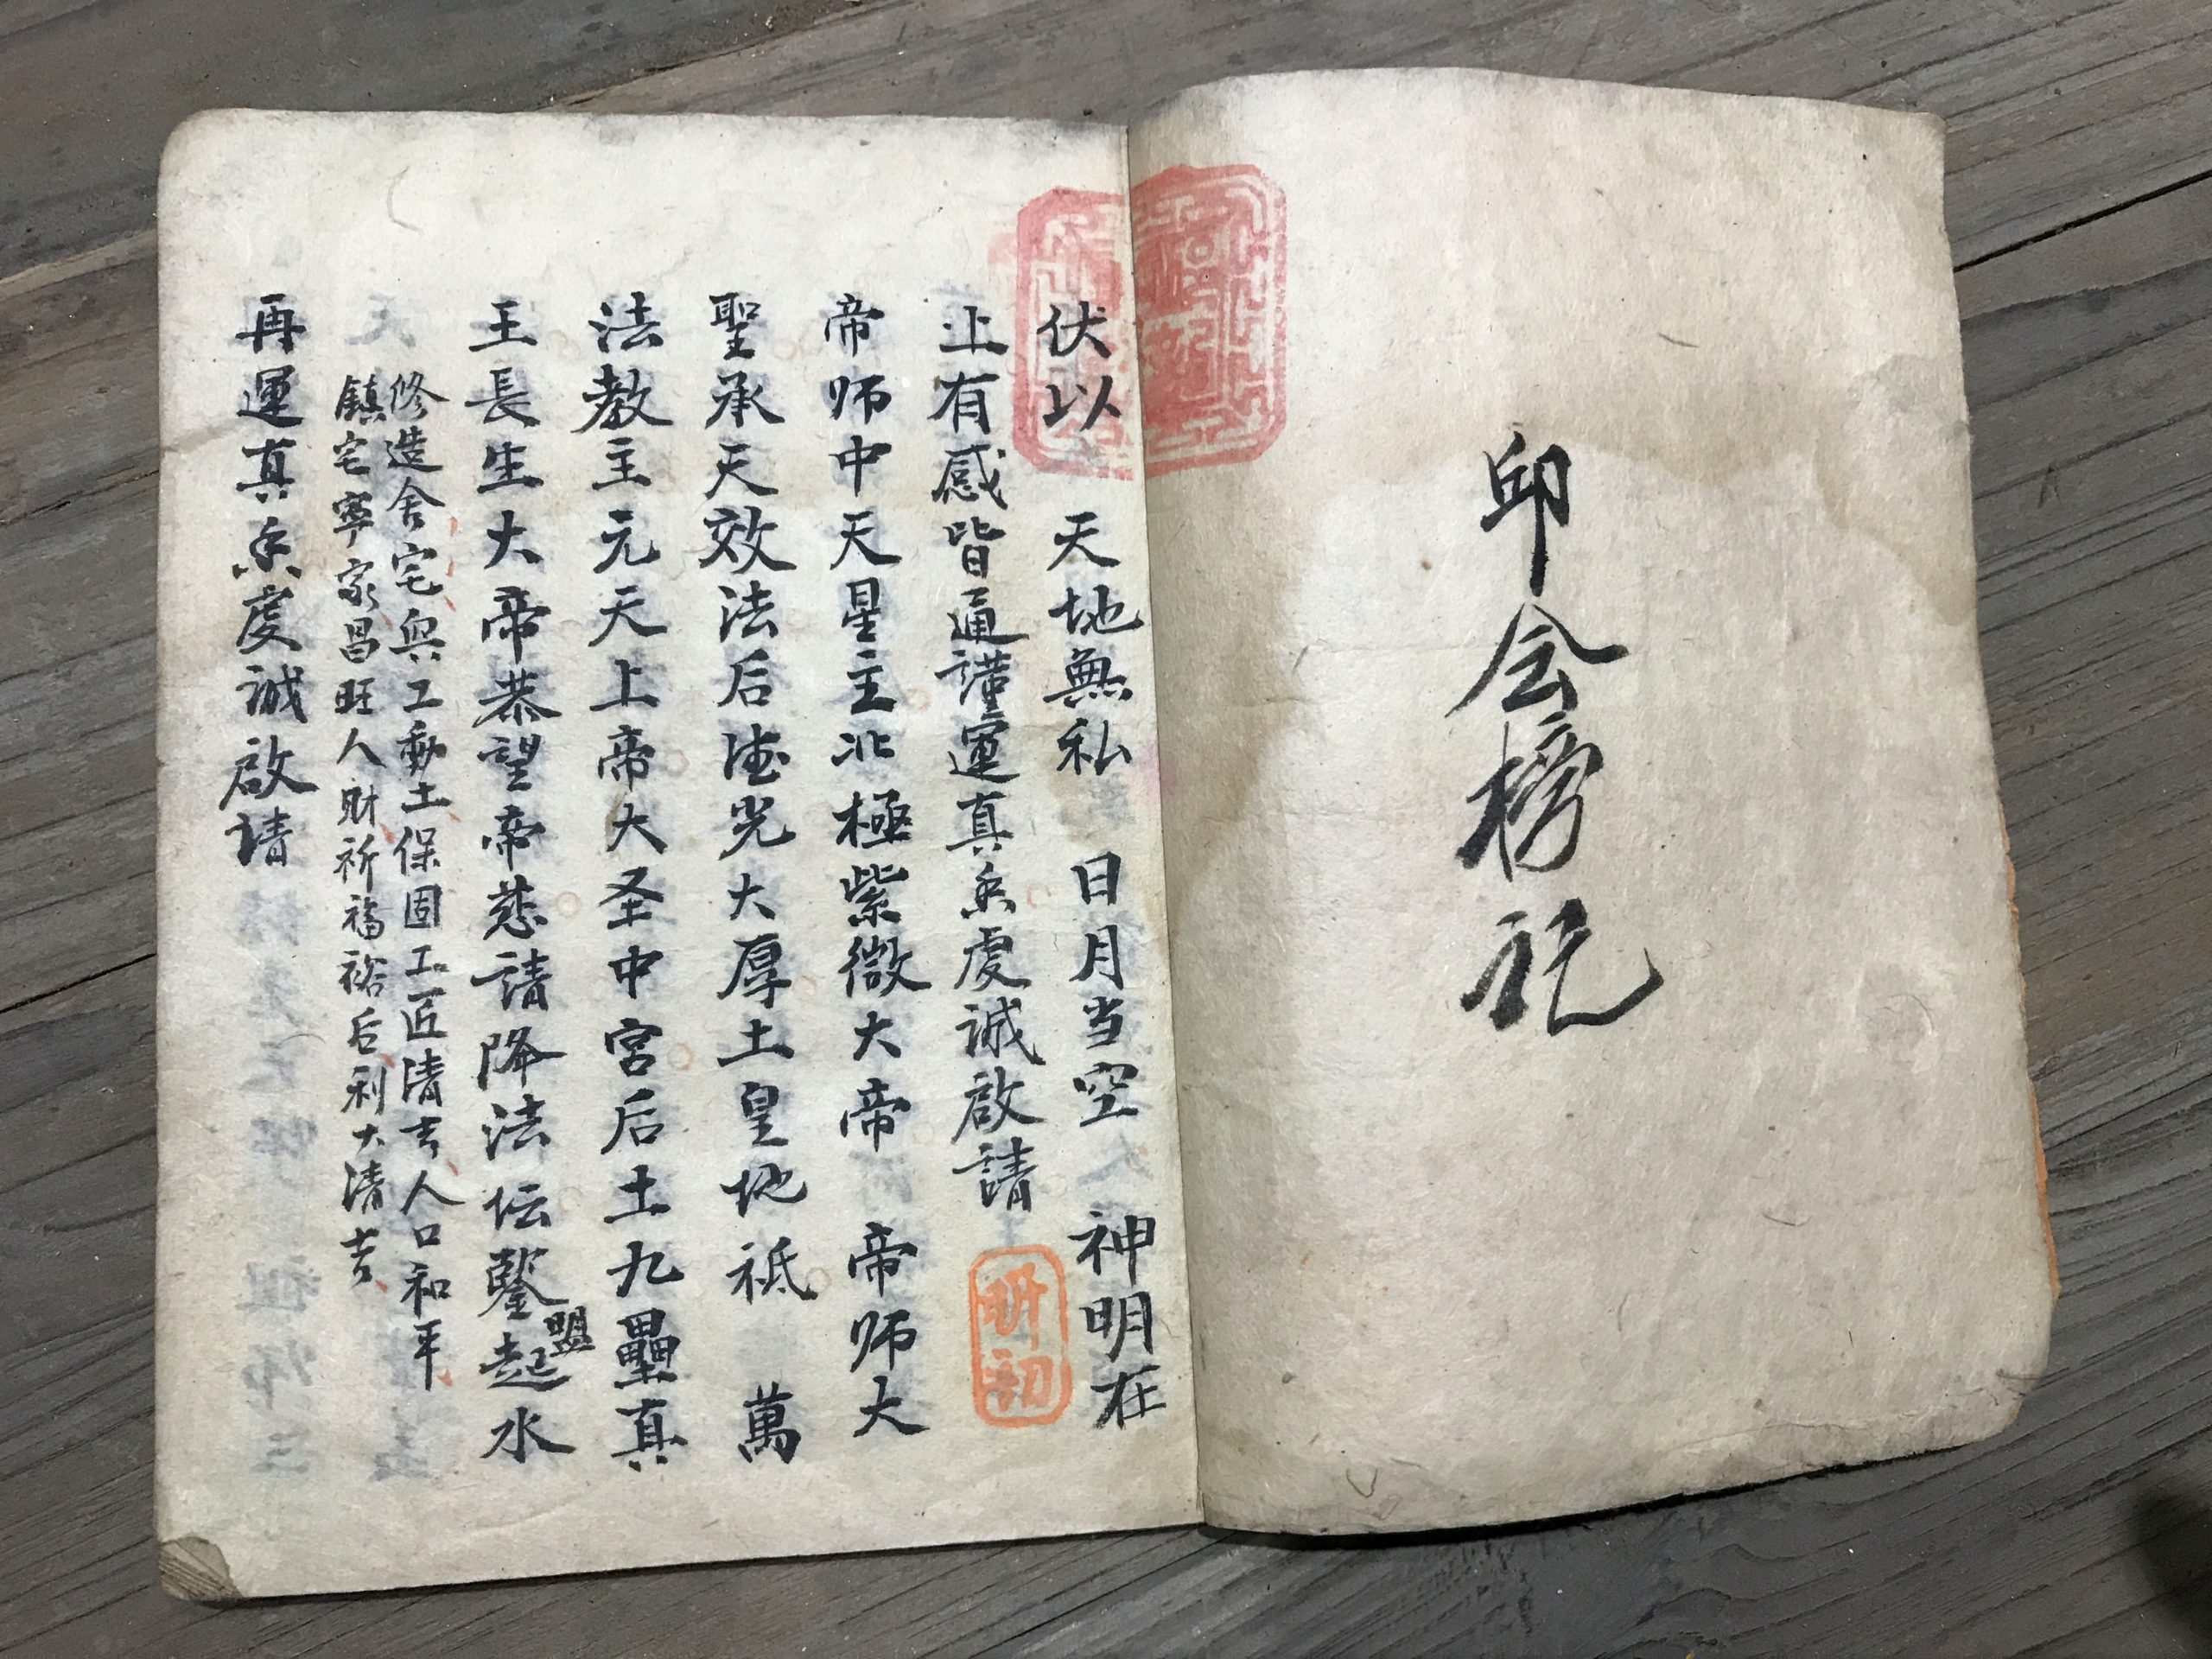 邱会榜記
伏以 天地無私 日月当空 神明在
上有感皆通謹運真香虔誠啟請
帝师中天星主北極紫微大帝 帝师大
聖承天效法后德光大厚土皇地祇 萬
法教主元天上帝大圣中宮后土九壘真
王長生大帝恭望帝慈請降法坛鑒盟起水
修造舍宅興工動土保固工匠清吉人口和平
鎮宅寧家昌旺人财祈福裕后利大清吉
再運真香虔誠啟請
昕初